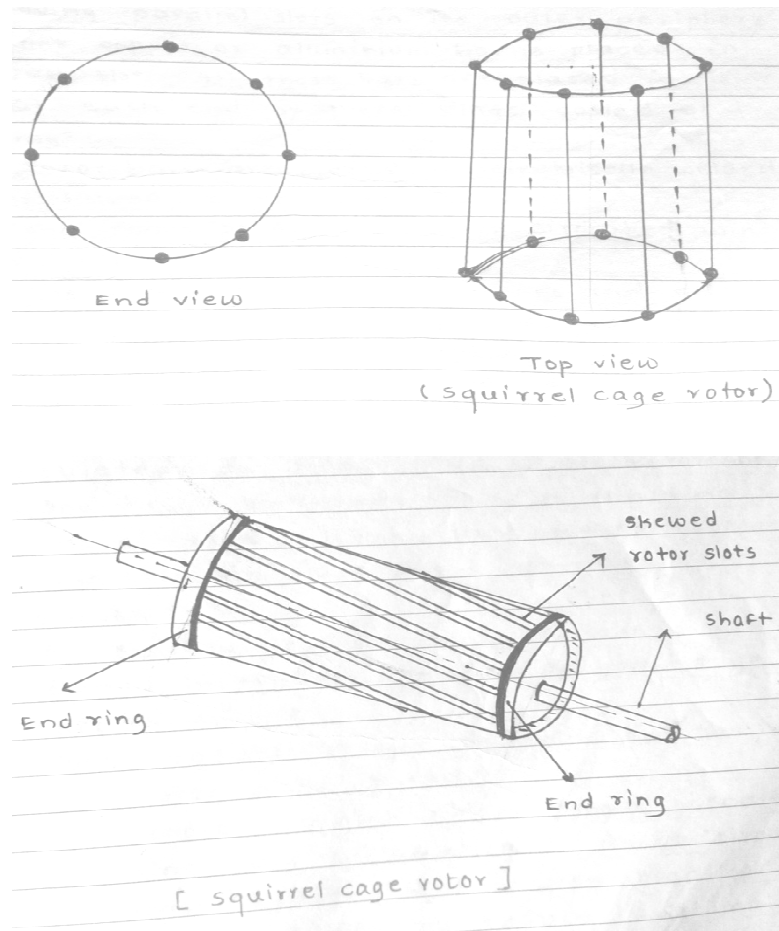 End view
Top view
(squirrel cage rotor)
skewed
rotor slots
shaft
End ring
End ring
[ squirrel cage rotor ]